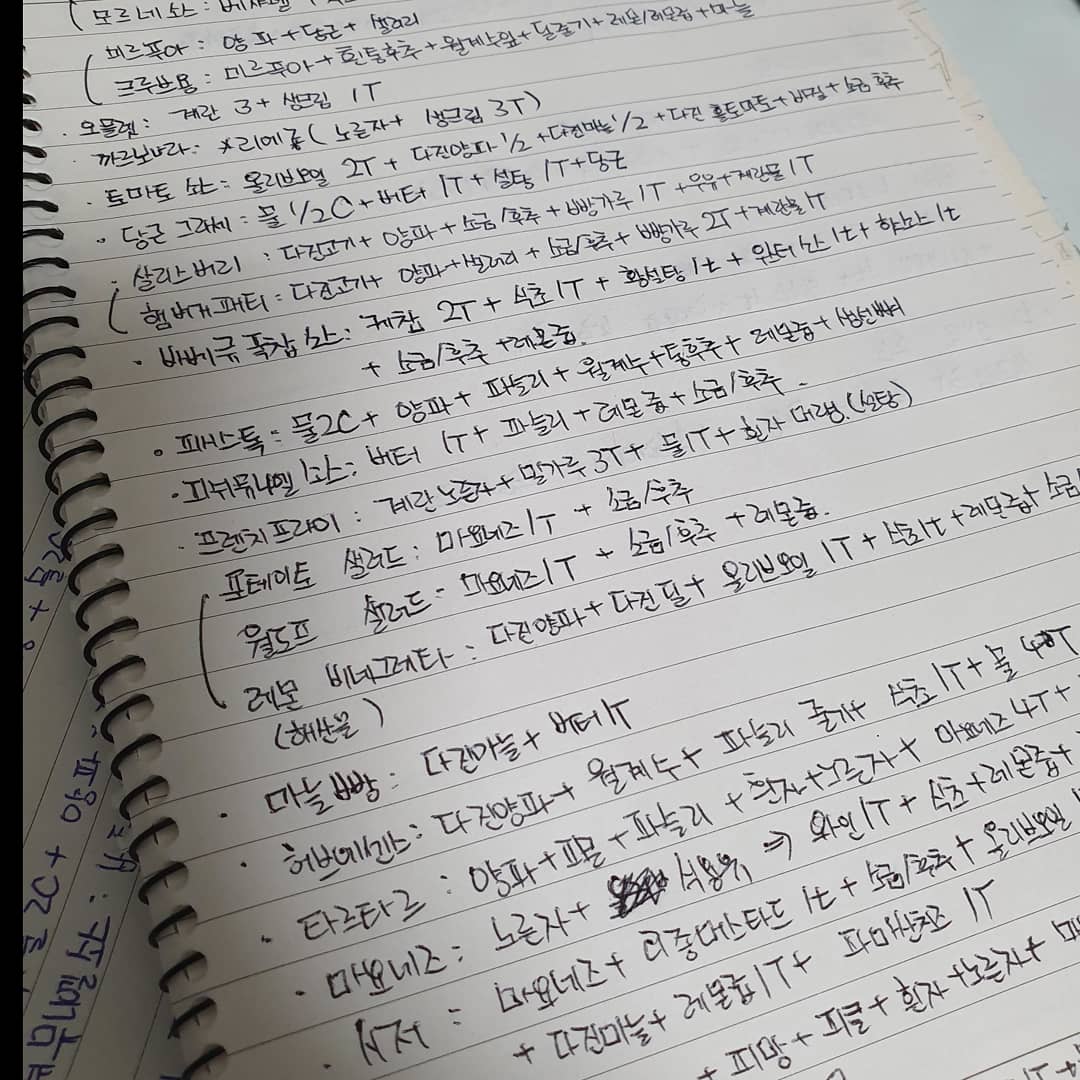 모르네 소스: 베샤멜
미르푸아: 양파+당근+샐러리
크루브용: 미르푸아+흰통후추+월계수잎+딜줄기+레몬/레몬즙+마늘
· 오믈렛: 계란 3+생크림 1T
· 까르보나라: *리에종(노른자+ 생크림 3T)
· 토마토 소스: 올리브오일 2T + 다진양파 1/2 +다진마늘 1/2 +다진 홀토마토+바질+소금 후추
· 당근 그라세: 물 1/2C+버터 1T+설탕 1T+당근
· 살리스버리 : 다진고기+ 양파+소금/후추+빵가루 1T+우유+계란물 1T
햄버거패티: 다진고기+ 양파+샐러리+소금/후추+빵가루 2T+계란물 1T
· 바베큐폭찹 소스: 케찹 2T + 식초 1T + 황설탕 1t + 우터 소스 1t+ 핫소스 1t
+ 소금/후추 +레몬즙.
· 피쉬스톡: 물2C+ 양파+ 파슬리+월계수+통후추+레몬즙+생선뼈
· 피쉬뮈니엘 소스: 버터 1T+ 파슬리+레몬즙+소금/후추.
· 프렌치프라이: 계란노른자+밀가루 3T+ 물1T+흰자 머랭.(설탕)
포테이토 샐러드: 마요네즈 1T + 소금/후추
월도프 샐러드- 마요네즈 1T + 소금/후추 +레몬즙.
레몬 비네그레타: 다진양파+다진딜+ 올리브오일 1T+식초1t+레몬즙+소금/
(해산물)
· 마늘빵: 다진마늘+ 버터 1T
· 허브에센스: 다진양파+ 월계수+ 파슬리 줄기+ 식초 1T+물 4T
· 타르타르: 양파+피클+파슬리 +흰자+노른자+ 마요네즈 4T+
· 마요네즈: 노른자+ 식용유 ⇒ 와인 1T+ 식초+레몬즙+
· 시저 : 마요네즈+ 디종머스타드 1t + 소금/후추+ 올리브오일
+ 다진마늘+ 레몬즙 1T+ 파마산치즈 1T
+ 피망+ 피클+ 흰자+노른자+